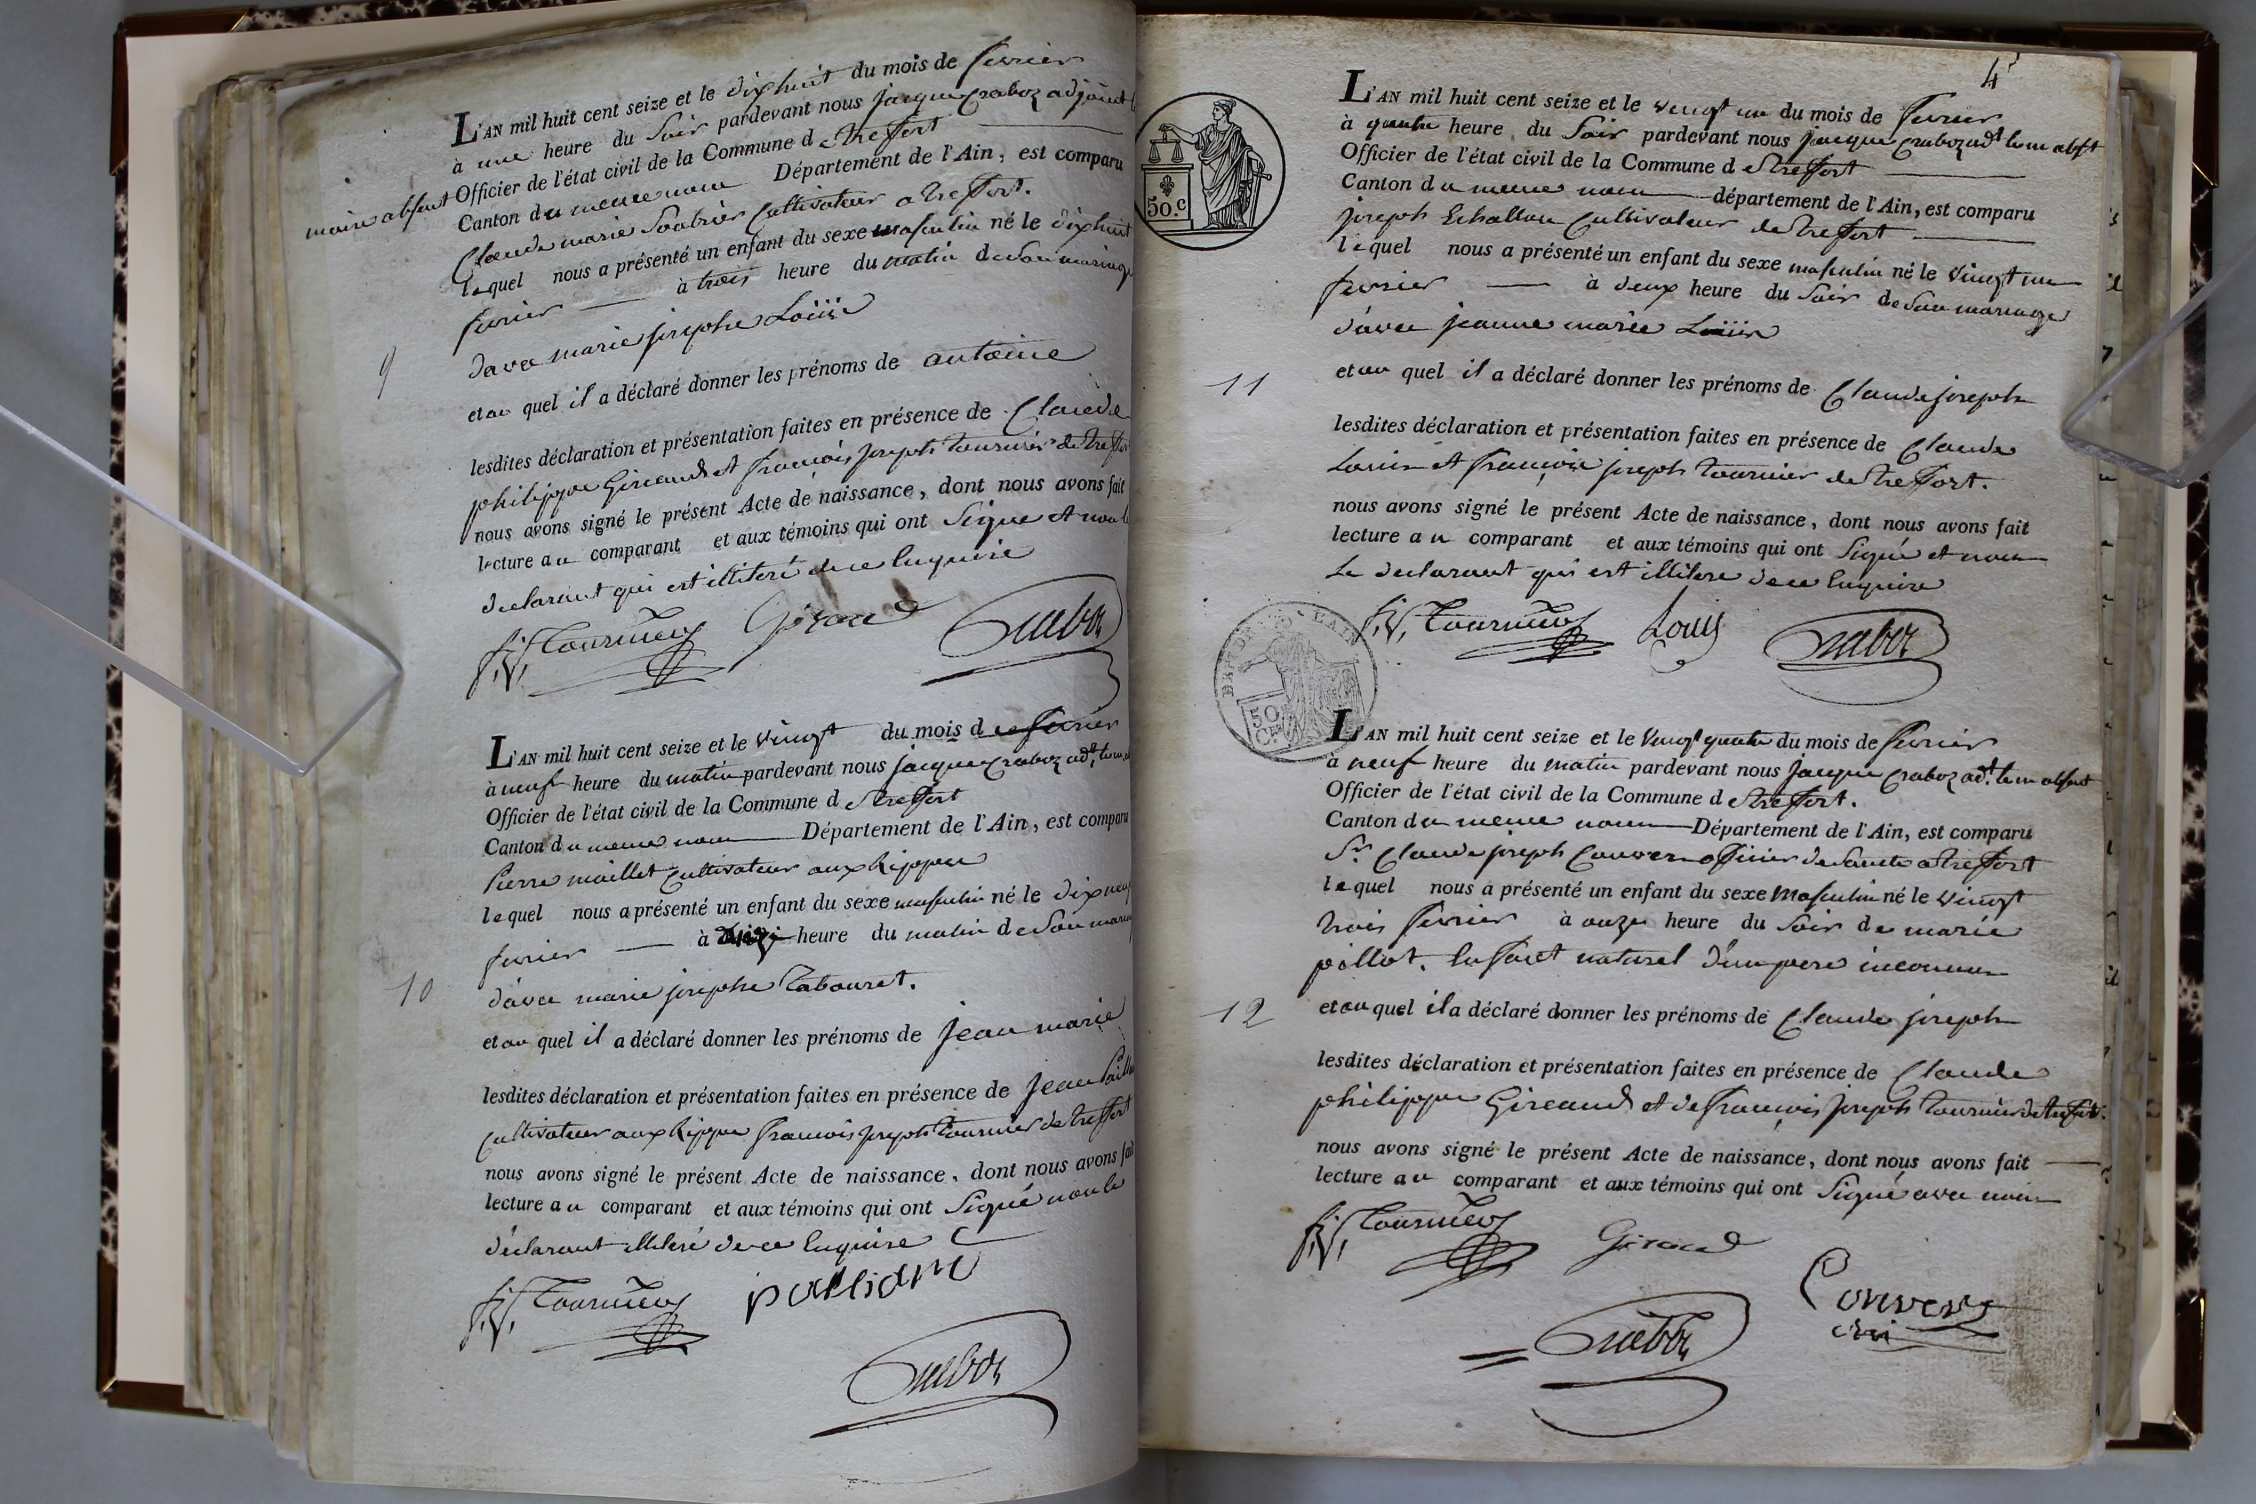 L'AN mil huit cent seize et le dixhuit du mois de fevrier
à une heure du soir pardevant nous jacque Craboz adjoint le
maire absent Officier de l'état civil de la Commune d etreffort
Canton du meme nom Département de l'Ain, est comparu
Claude marie Cultivateur a treffort.
lequel nous a présenté un enfant du sexe masculin né le dixhuit
fevrier à trois heure du matin de son mariage
davec marie josephe Loüis
9
et au quel il a déclaré donner les prénoms de antoine
lesdites déclaration et présentation faites en présence de Claude
philippe Gireaud et françois joseph tournier de treffort
nous avons signé le présent Acte de naissance, dont nous avons fait
lecture au comparant et aux témoins qui ont signe et non le
declarant qui est illiteré de ce enquiré
f. j. Tournier Giraud Craboz
L'AN mil huit cent seize et le vingt du mois de fevrier
à neuf heure du matin pardevant nous jacque Craboz adt. le m.
Officier de l'état civil de la Commune d etreffort
Canton du meme nom Département de l'Ain, est comparu
Pierre maillet Cultivateur aux Rippes
lequel nous a présenté un enfant du sexe masculin né le dix neuf
fevrier à heure du matin de son mariage
10
d'avec marie josephe Tabouret.
et au quel il a déclaré donner les prénoms de jean marie
lesdites déclaration et présentation faites en présence de jean
Cultivateur aux Rippes françois joseph tournier de treffort
nous avons signé le présent Acte de naissance, dont nous avons fait
lecture au comparant et aux témoins qui ont signé non le
déclarant illiteré de ce enquire
f. j. Tournier Craboz
4
50.c
L'AN mil huit cent seize et le vingt un du mois de fevrier
à quatre heure du soir pardevant nous jacque Craboz adt le m abst
Officier de l'état civil de la Commune d etreffort
Canton du meme nom département de l'Ain, est comparu
joseph Echallon Cultivateur de treffort
lequel nous a présenté un enfant du sexe masculin né le vingt un
fevrier à deux heure du soir de son mariage
d'avec jeanne marie Loüis
11
et au quel il a déclaré donner les prénoms de Claude joseph
lesdites déclaration et présentation faites en présence de Claude
Louis et françois joseph tournier de treffort.
nous avons signé le présent Acte de naissance, dont nous avons fait
lecture au comparant et aux témoins qui ont signé et non
Le declarant qui est illitere de ce enquire
f. j. Tournier Louis Craboz
50 C.
L'AN mil huit cent seize et le vingt quatre du mois de fevrier
à neuf heure du matin pardevant nous jacque Craboz adt. le m absent
Officier de l'état civil de la Commune d etreffort.
Canton du meme nom Département de l'Ain, est comparu
Sr. Claude joseph Convers officier de sante a treffort
lequel nous a présenté un enfant du sexe masculin né le vingt
trois fevrier à onze heure du soir de marie
pillot. enfant naturel d'un pere inconnu
12
et au quel il a déclaré donner les prénoms de Claude joseph
lesdites déclaration et présentation faites en présence de Claude
philippe Gireaud et de françois joseph tournier de treffort.
nous avons signé le présent Acte de naissance, dont nous avons fait
lecture au comparant et aux témoins qui ont signé avec nous
f. j. Tournier Giraud
Convers
Craboz